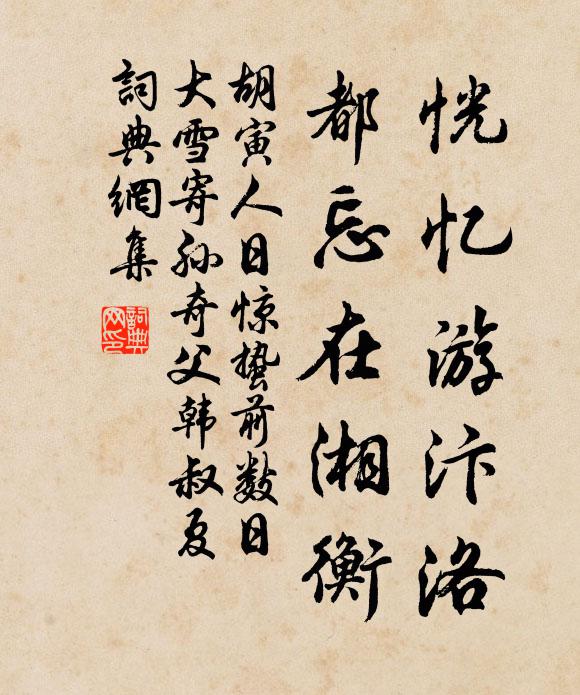 恍忆游汴洛
都忘在湘衡
胡寅人日惊蛰前数日
大雪寄孙奇父韩叔夏
詞典網集
詞典
网印